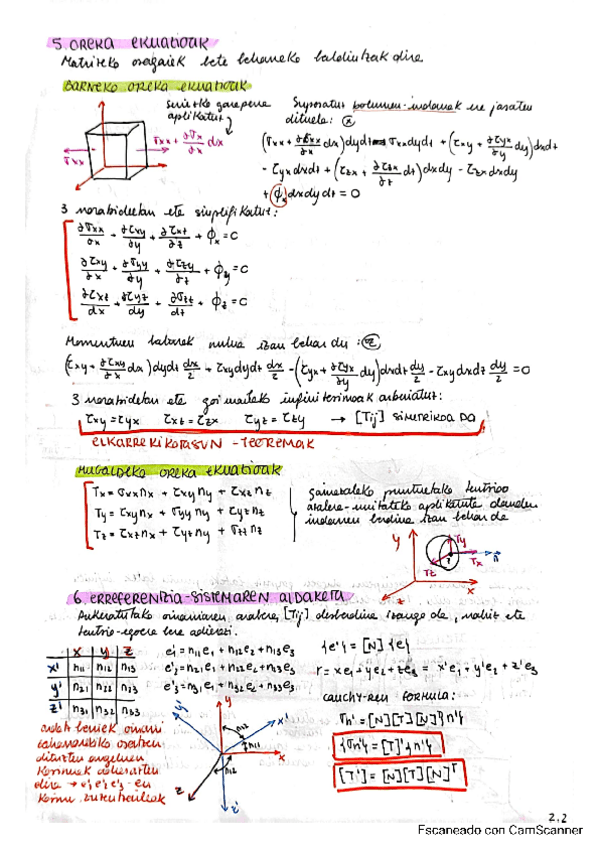 5. OREKA EKUAZIOAK
Matrizeko osagaiak bete beharreko baldintzak dira.
BARNEKO OREKA EKUAZIOAK
Serietako garapena
aplikatuz
Suposatuz bolumen-indarrak ere jasaten
dituela: (x)
σxx
σxx + ∂σx/∂x dx
(σxx + ∂σxx/∂x dx)dydz - σxx dydz + (τxy + ∂τyx/∂y dy)dxdz
- τyx dxdz + (τzx + ∂τzx/∂z dz)dxdy - τzx dxdy
+ ϕx dxdydz = 0
3 norabideetan eta sinplifikatuz:
∂σxx/∂x + ∂τxy/∂y + ∂τxz/∂z + ϕx = 0
∂τxy/∂x + ∂σyy/∂y + ∂τzy/∂z + ϕy = 0
∂τxz/dx + ∂τyz/dy + ∂σzz/dz + ϕz = 0
Momentuen baturak nulua izan behar du: (z)
(τxy + ∂τxy/∂x dx)dydz dx/2 + τxy dydz dx/2 - (τyx + ∂τyx/∂y dy)dxdz dy/2 - τxy dxdz dy/2 = 0
3 norabidetan eta goi mailako infinitesimoak arbuiatuz:
τxy = τyx τxz = τzx τyz = τzy → [Tij] SIMETRIKOA DA
ELKARREKIKOTASUN - TEOREMAK
MUGALDEKO OREKA EKUAZIOAK
Tx = σxx nx + τxy ny + τxz nz
Ty = τxy nx + σyy ny + τyz nz
Tz = τxz nx + τyz ny + σzz nz
gainazaleko puntuetako tentsioa
azalera-unitateko aplikatuta dauden
indarren berdina izan behar da
y
Ty
Tx
n
Tz
x
z
6. ERREFERENTZIA-SISTEMAREN ALDAKETA
Aukeratutako oinarriaren arabera, [Tij] desberdina izango da, nahiz eta
tentsio-egoera bera adierazi.
x y z
x' n11 n12 n13
y' n21 n22 n23
z' n31 n32 n33
e'1 = n11e1 + n12e2 + n13e3
e'2 = n21e1 + n22e2 + n23e3
e'3 = n31e1 + n32e2 + n33e3
{e'} = [N] {e}
r = xe1 + ye2 + ze3 = x'e1 + y'e2 + z'e3
CAUCHY-REN FORMULA:
σn' = [N][T][N]{n'}
{σn'} = [T']{n'}
[T'] = [N][T][N]ᵀ
ardatz berriek oinarri
osatzen
dituzten angeluen
kosinuak adierazten
dira → e'1 e'2 e'3-en
y
y'
n12
x'
n11
x
z
z'
2.2
Escaneado con CamScanner